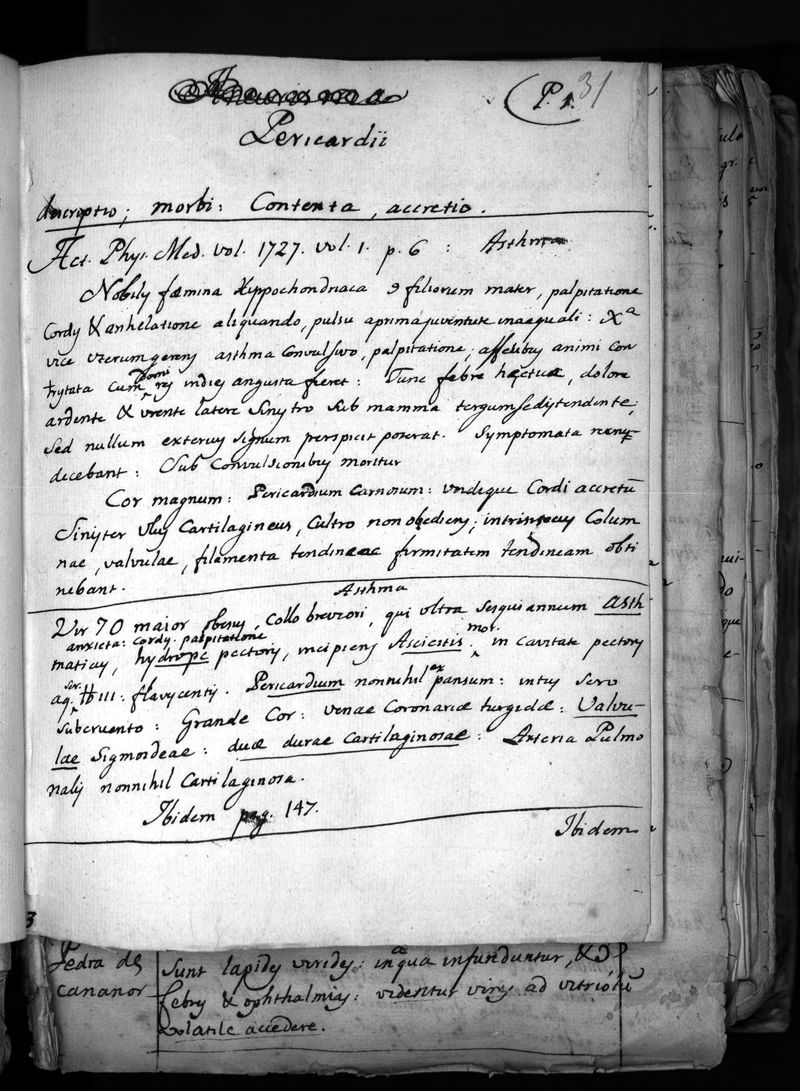 Aneurisma
(P. 1. 31
Pericardii
descriptio; morbi: Contenta, accretio.
Act. Phys. Med. vol. 1727. vol. 1. p. 6 : Asthma
Nobilis fæmina Hippochondriaca 9 filiorum mater, palpitatione
Cordis & anhelatione aliquando, pulsu a prima juventute inæquali: Xa
vice uterum gerens asthma Convulsivo, palpitatione; affectibus animi con
tristata cum domi res indies angusta fieret: Tunc febre hectica, dolore
ardente & urente latere sinistro sub mamma tergum se distendente;
sed nullum exterius signum perspici poterat. Symptomata
decebant: Sub Convulsionibus moritur
Cor magnum: Pericardium Carnosum: undeque Cordi accretũ
Sinister Cartilagineus, Cultro non obediens; intrinsecus Colum
nae, valvulae, filamenta tendineae firmitatem tendineam obti
nebant.
Asthma
Vir 70 major obesus, Collo breviori, qui ultra sesqui annum Asth
anxieta: Cordis palpitatione mor.
maticus, hydrope pectoris, incipiens Ascietis. in cavitate pectoris
ser. ex
aq. ℔ III: flavescentis. Pericardium nonnihil pansum: intus sero
subcruento: Grande Cor: venae Coronariæ turgidæ: Valvu-
lae Sigmoideae: duæ durae Cartilaginosae: Arteria Pulmo
nalis nonnihil Cartilaginosa.
Ibidem pag. 147.
Ibidem
3
Pedra de Sunt lapides virides: in aqua infunduntur, &
cananor febris & ophthalmias: videntur vires ad vitriolũ
volatile accedere.